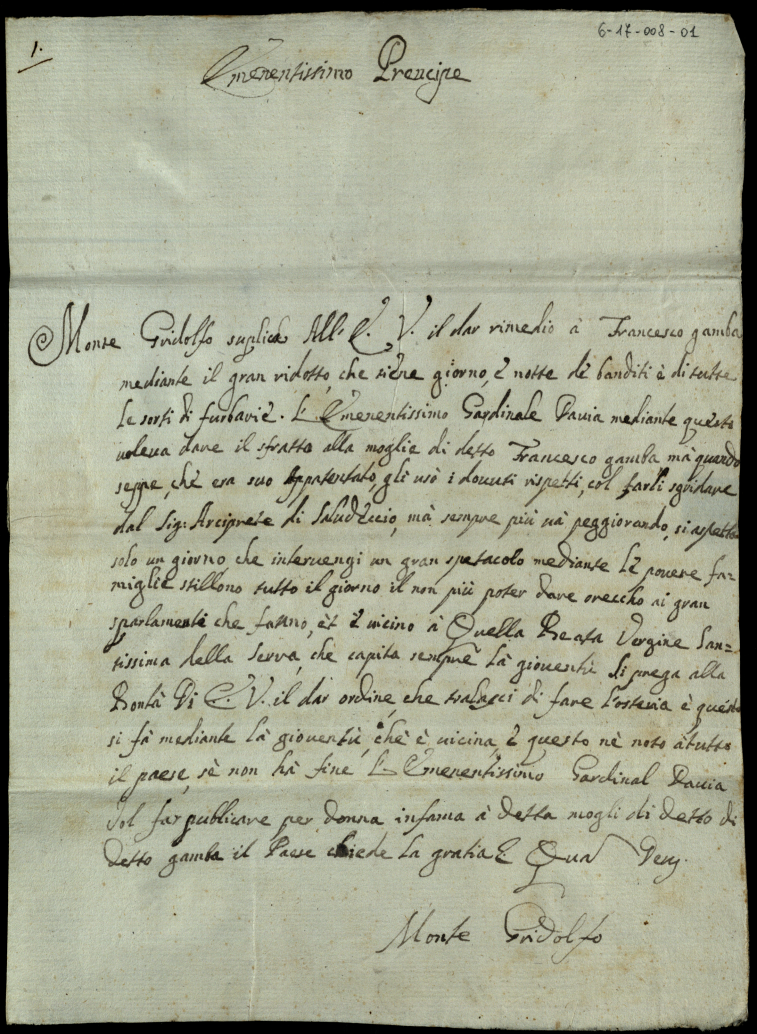 6-17-008-01
1.
Emenentissimo Prencipe
Monte Gridolfo suplica All' E. V. il dar rimedio à Francesco gamba
mediante il gran ridotto, che tiene giorno, è notte dè banditi è di tutte
le sorti di furbarie. L' Emenentissimo Gardinale Davia mediante questo
voleva dare il sfratto alla moglie di detto Francesco gamba mà quando
seppe, che era suo Appatentato, gli usò i dovuti rispetti, col farli sgridare
dal Sig: Arciprete di Saludeccio, mà sempre più và peggiorando, si aspetta
solo un giorno, che intervengi un gran spetacolo mediante le povere fa=
miglie stillono tutto il giorno il non più poter dare orecchio ai gran
sparlamenti che fanno, èt è vicino à Quella Beata Vergine San=
tissima della Serra, che capita sempre là gioventù si prega alla
Bontà Di E. V. il dar ordine, che tralasci di fare l'osteria è questo
si fà mediante là gioventù, chè è vicina, è questo nè noto à tutto
il paese, sè non hà fine L' Emenentissimo Gardinal Davia
Vol far publicare per donna infama à detta mogli di detto di
detto gamba il Paese chiede la gratia E Qua Deus.
Monte Gridolfo